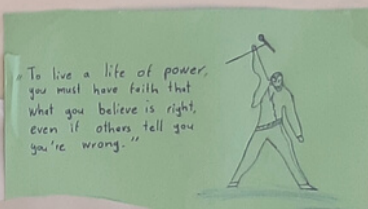 "To live a life of power,
you must have faith that
what you believe is right,
even if others tell you
you're wrong."